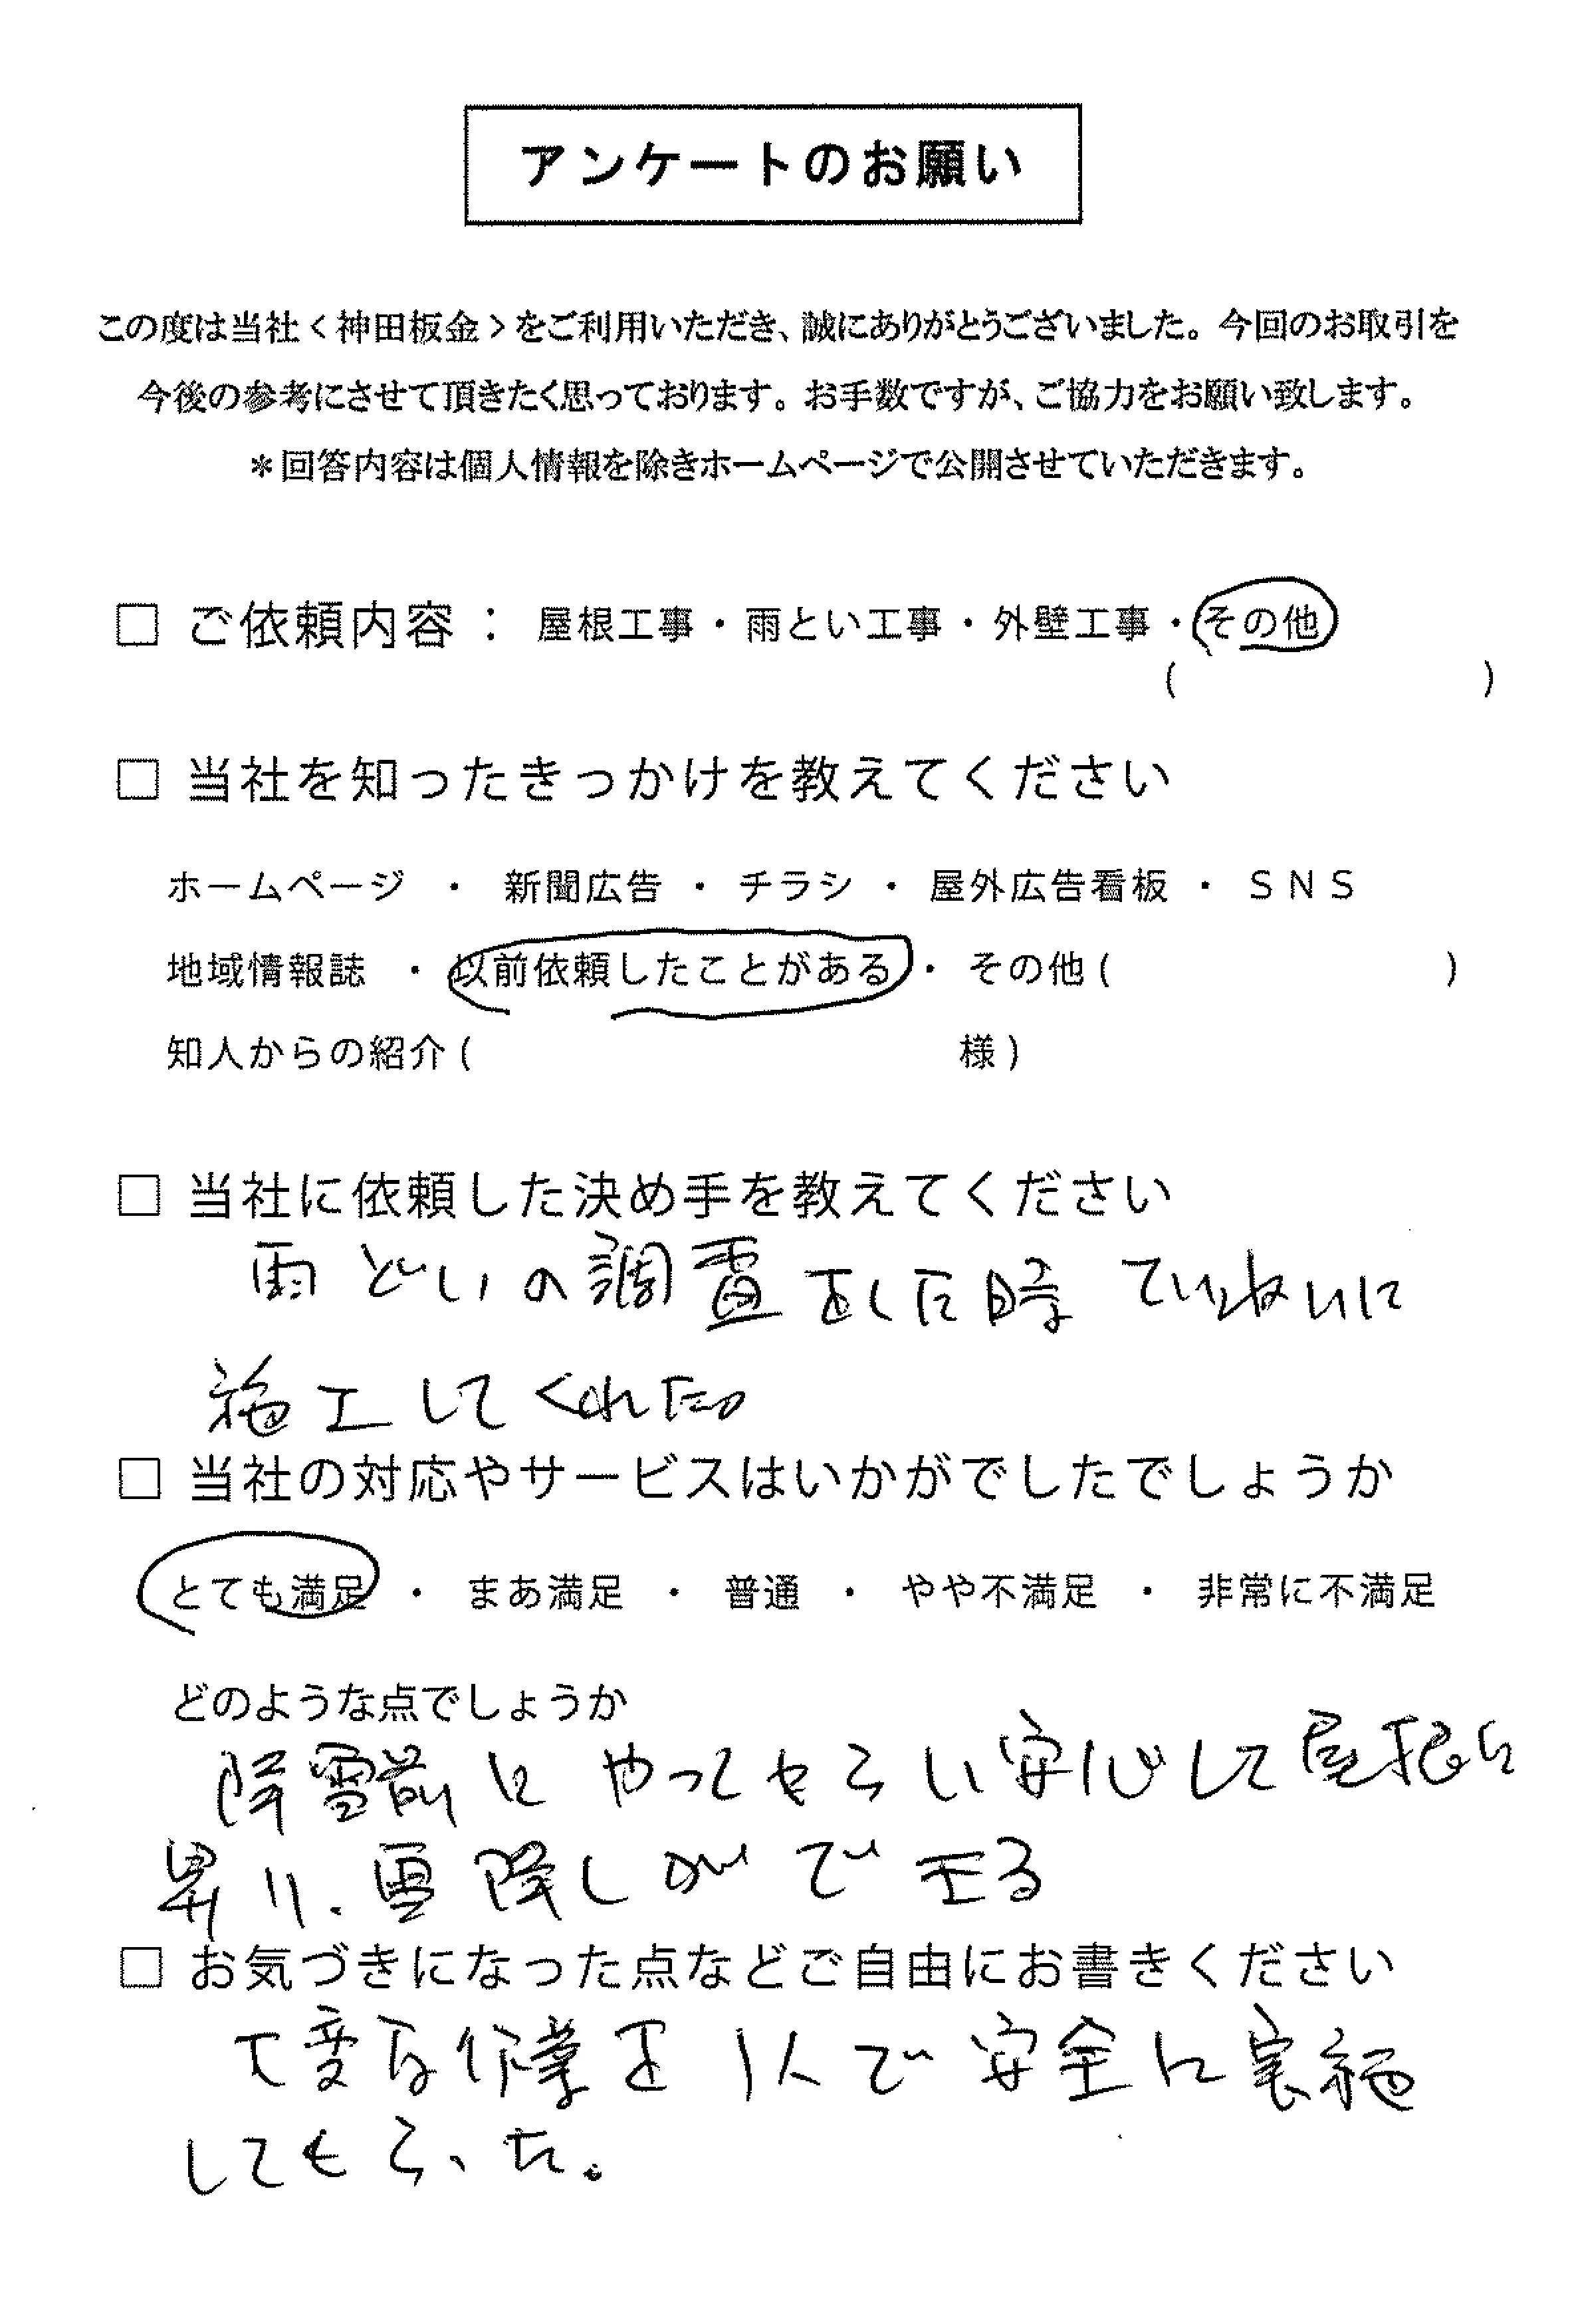 アンケートのお願い
この度は当社<神田板金>をご利用いただき、誠にありがとうございました。今回のお取引を
今後の参考にさせて頂きたく思っております。お手数ですが、ご協力をお願い致します。
*回答内容は個人情報を除きホームページで公開させていただきます。
□ ご依頼内容：屋根工事・雨とい工事・外壁工事・その他
( )
□ 当社を知ったきっかけを教えてください
ホームページ ・ 新聞広告 ・ チラシ ・ 屋外広告看板 ・ SNS
地域情報誌 ・ 以前依頼したことがある ・ その他( )
知人からの紹介( 様)
□ 当社に依頼した決め手を教えてください
雨どいの調置をした時ていねいに
施工してくれた
□ 当社の対応やサービスはいかがでしたでしょうか
とても満足 ・ まあ満足 ・ 普通 ・ やや不満足 ・ 非常に不満足
どのような点でしょうか
降雪前にやってもらい安心して屋根に
昇り、雪降しができる
□ お気づきになった点などご自由にお書きください
大変な作業を1人で安全に実施
してもらった。